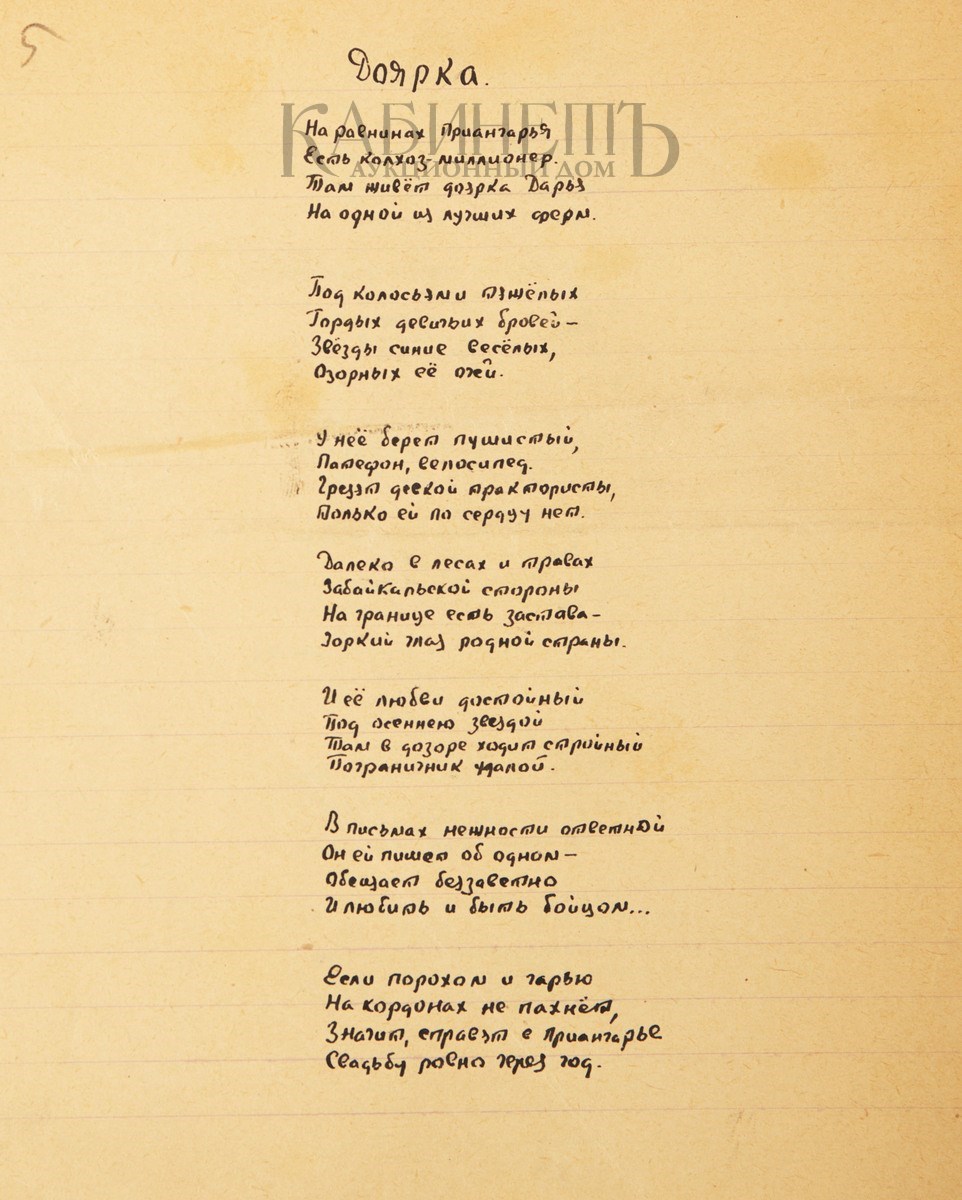 5
Доярка.
КАБИНЕТЪ
АУКЦИОННЫЙ ДОМ
На равнинах Приангарья
Есть колхоз-миллионер.
Там живёт доярка Дарья
На одной из лучших ферм.
Под колосьями тяжёлых
Гордых девичьих бровей –
Звёзды синие весёлых,
Озорных её очей.
У неё берет пушистый,
Патефон, велосипед.
Грезят девкой трактористы,
Только ей по сердцу нет.
Далеко в лесах и травах
Забайкальской стороны
На границе есть застава –
Зоркий глаз родной страны.
И её любви достойный
Под осеннею звездой
Там в дозоре ходит стройный
Пограничник удалой.
В письмах нежности ответной
Он ей пишет об одном –
Обещает беззаветно
И любить и быть бойцом...
Если порохом и гарью
На кордонах не пахнёт,
Значит, справят в Приангарье
Свадьбу ровно через год.